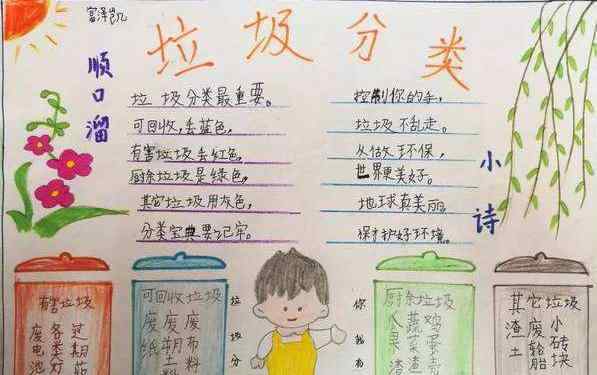 富泽凯
垃圾分类
顺口溜
垃圾分类最重要。
可回收,丢蓝色,
有害垃圾丢红色,
厨余垃圾是绿色,
其它垃圾用灰色,
分类宝典要记牢。
小诗
控制你的手,
垃圾不乱走。
从做环保,
世界更美好。
地球真美丽,
保护好环境。
有害垃圾
废电池
各类灯
过期
可回收垃圾
废纸
废塑料
废布料
垃圾分
你我
厨余垃圾
瓜果
蔬菜
鸡蛋
其它垃圾
渣土
废轮胎
小砖块